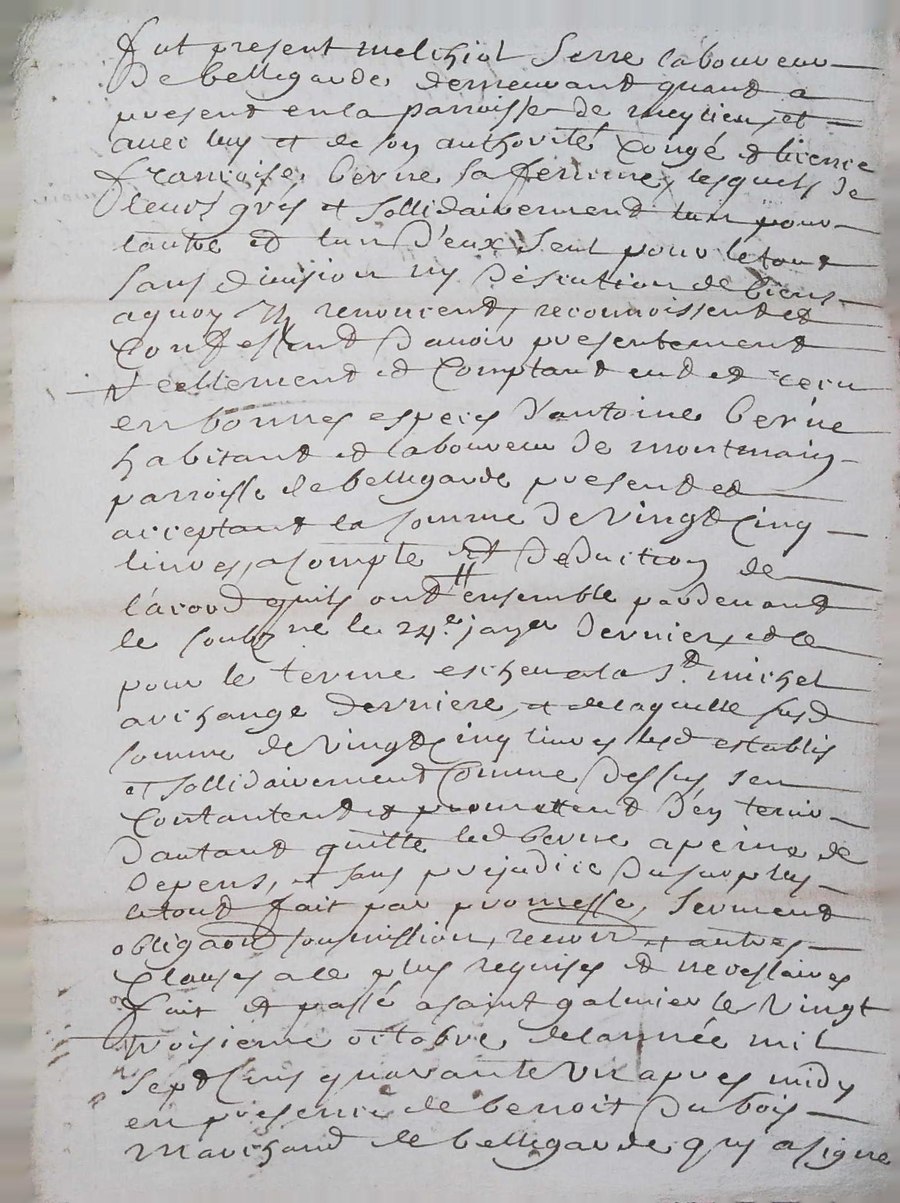 fut present melchiol Serre laboureur
De bellegarde demeurant quant a
present en la parroisse de meylieu, et
avec luy et de son authorité Congé et licence
francoise berne sa femme, lesquels de
leurs grés et sollidairement lun pour
lautre et lun D'eux seul pour le tout
sans division ny Discution de biens
aquoy ils renoncent, reconnoissent et
Confessent Davoir presentement
reellement et Comptant eud et receu
en bonnes especes Dantoine berne
habitant et laboureur de montmain
parroisse de bellegarde present et
acceptant la somme De Vingt Cinq
livres, a compte et Deduction de
l'acord quils ont ensemble pardevant
le soubz ne le 24e janer Dernier, et ce
pour le terme escheu a la St michel
archange Derniere, et de laquelle susd
somme de Vingt Cinq livres lesd establis
et sollidairement Comme Dessus sen
Contantent et promettent D'en tenir
Dautant quitte led berne a peine de
Depens, et sans prejudice Du surplus
le tout fait par promesse, serment
obligaon soumission, renon et autres
Clauses a ce plus requises et necessaires
fait et passé a saint galmier le Vingt
troisieme octobre de lannée mil
sept Cens quarante Un apres midy
en presence de benoit Dubois
marchand de bellegarde quy a signe